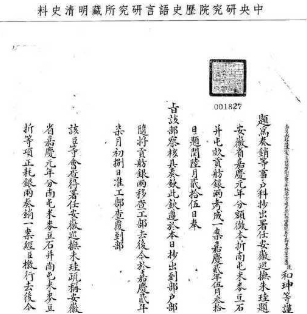 中央研究院歷史語言研究所藏明清史料
001827
和珅等謹
題為奏銷等事戶科抄出署任安徽巡撫朱珪題
安徽省嘉慶元年分額徵本折南屯米麥豆石
并屯餘貢舫銀兩考成一案嘉慶貳年伍月叁拾
日題閏陸月貳拾伍日奉
旨該部察核具奏欽此欽遵於本日抄出到部戶部
隨將貢舫銀兩移查工部去後今於嘉慶貳年
柒月初捌日准工部查覆到部
該臣等會看得署任安徽巡撫朱珪疏稱安徽
省嘉慶元年分南屯米麥豆石并南屯
折等項正耗銀兩奏銷一案經臣檄行去後今